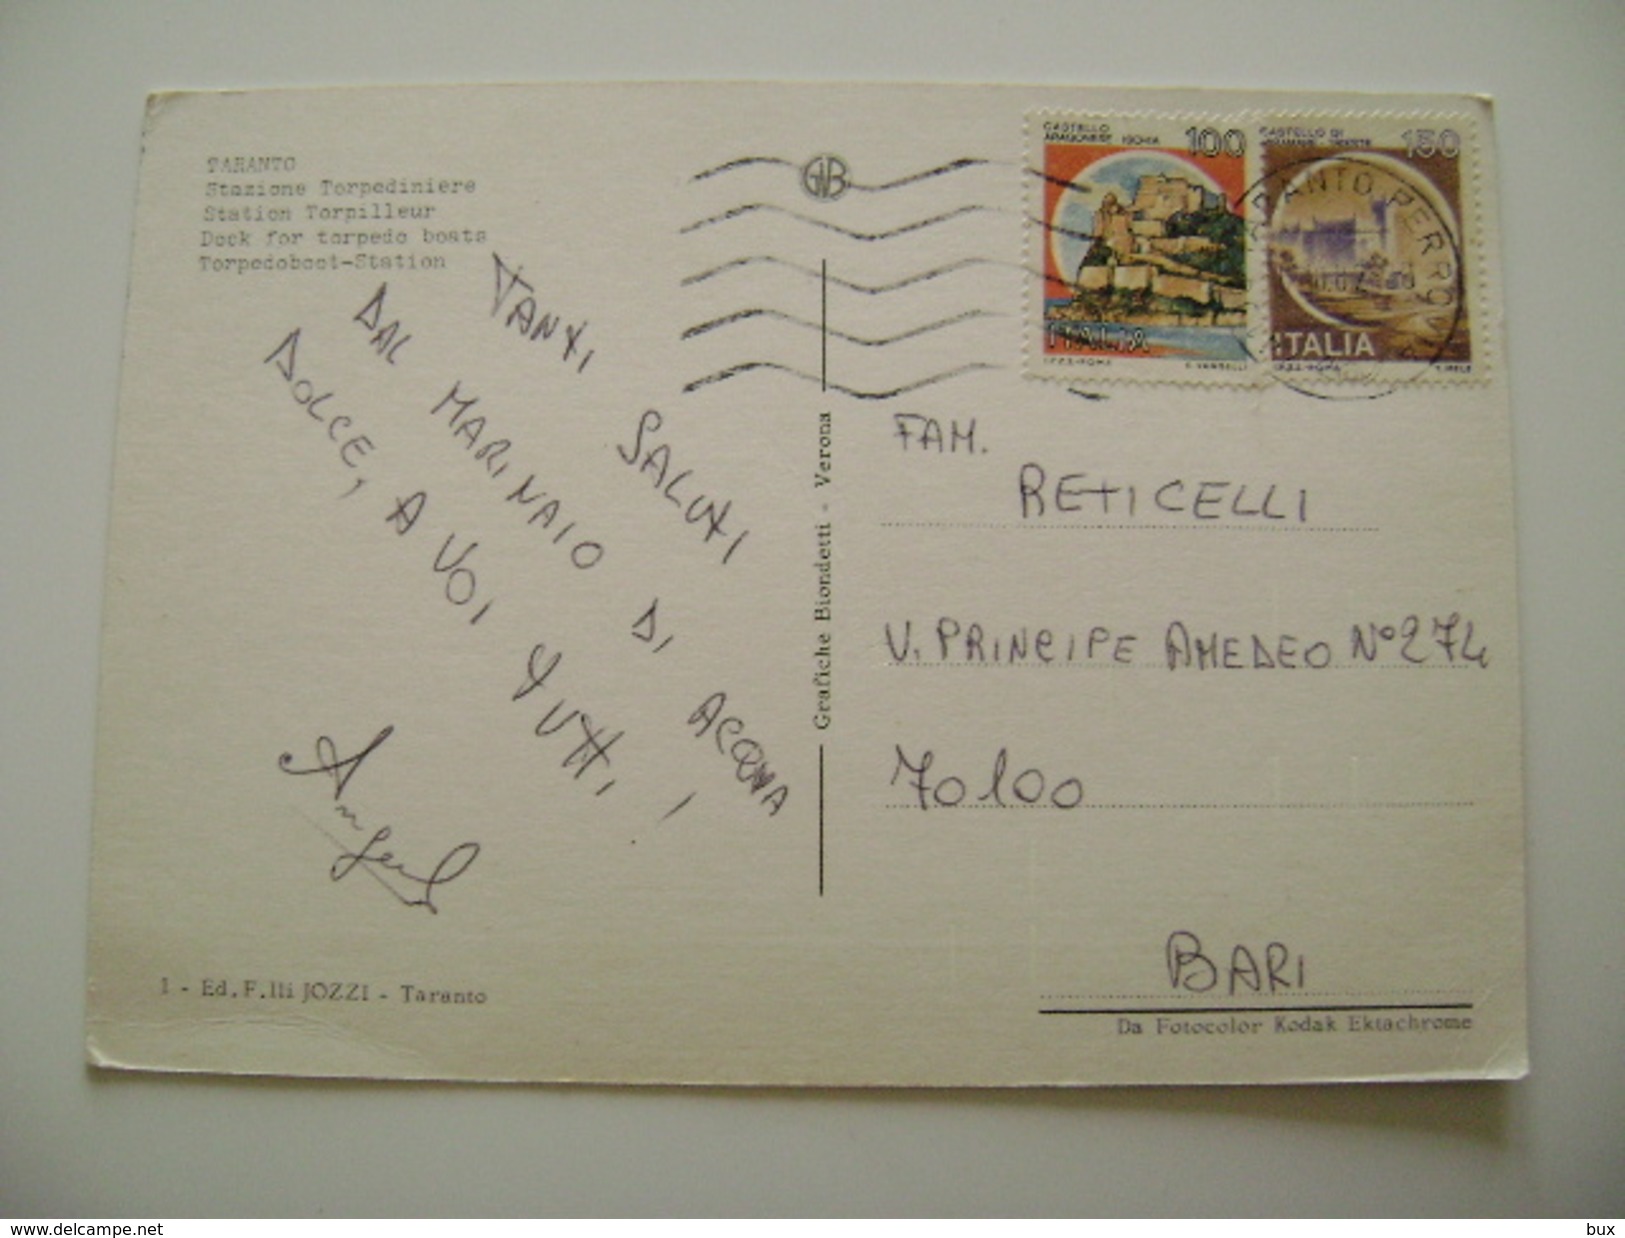 TARANTO
Stazione Torpediniere
Station Torpilleur
Dock for torpedo boats
Torpedoboot-Station
TANTI SALUTI
DAL MARINAIO DI ACQUA
DOLCE, A VOI TUTTI!
Angelo
1 - Ed. F.lli JOZZI - Taranto
Grafiche Biondetti - Verona
GNB
CASTELLO
ARAGONESE ISCHIA
100
ITALIA
I.P.Z.S.-ROMA E. VANGELLI
CASTELLO DI
MIRAMARE-TRIESTE
150
ITALIA
I.P.Z.S.-ROMA
TARANTO FERROVIA
FAM.
RETICELLI
V. PRINCIPE AMEDEO N° 274
70100
BARI
Da Fotocolor Kodak Ektachrome
www.delcampe.net
bux